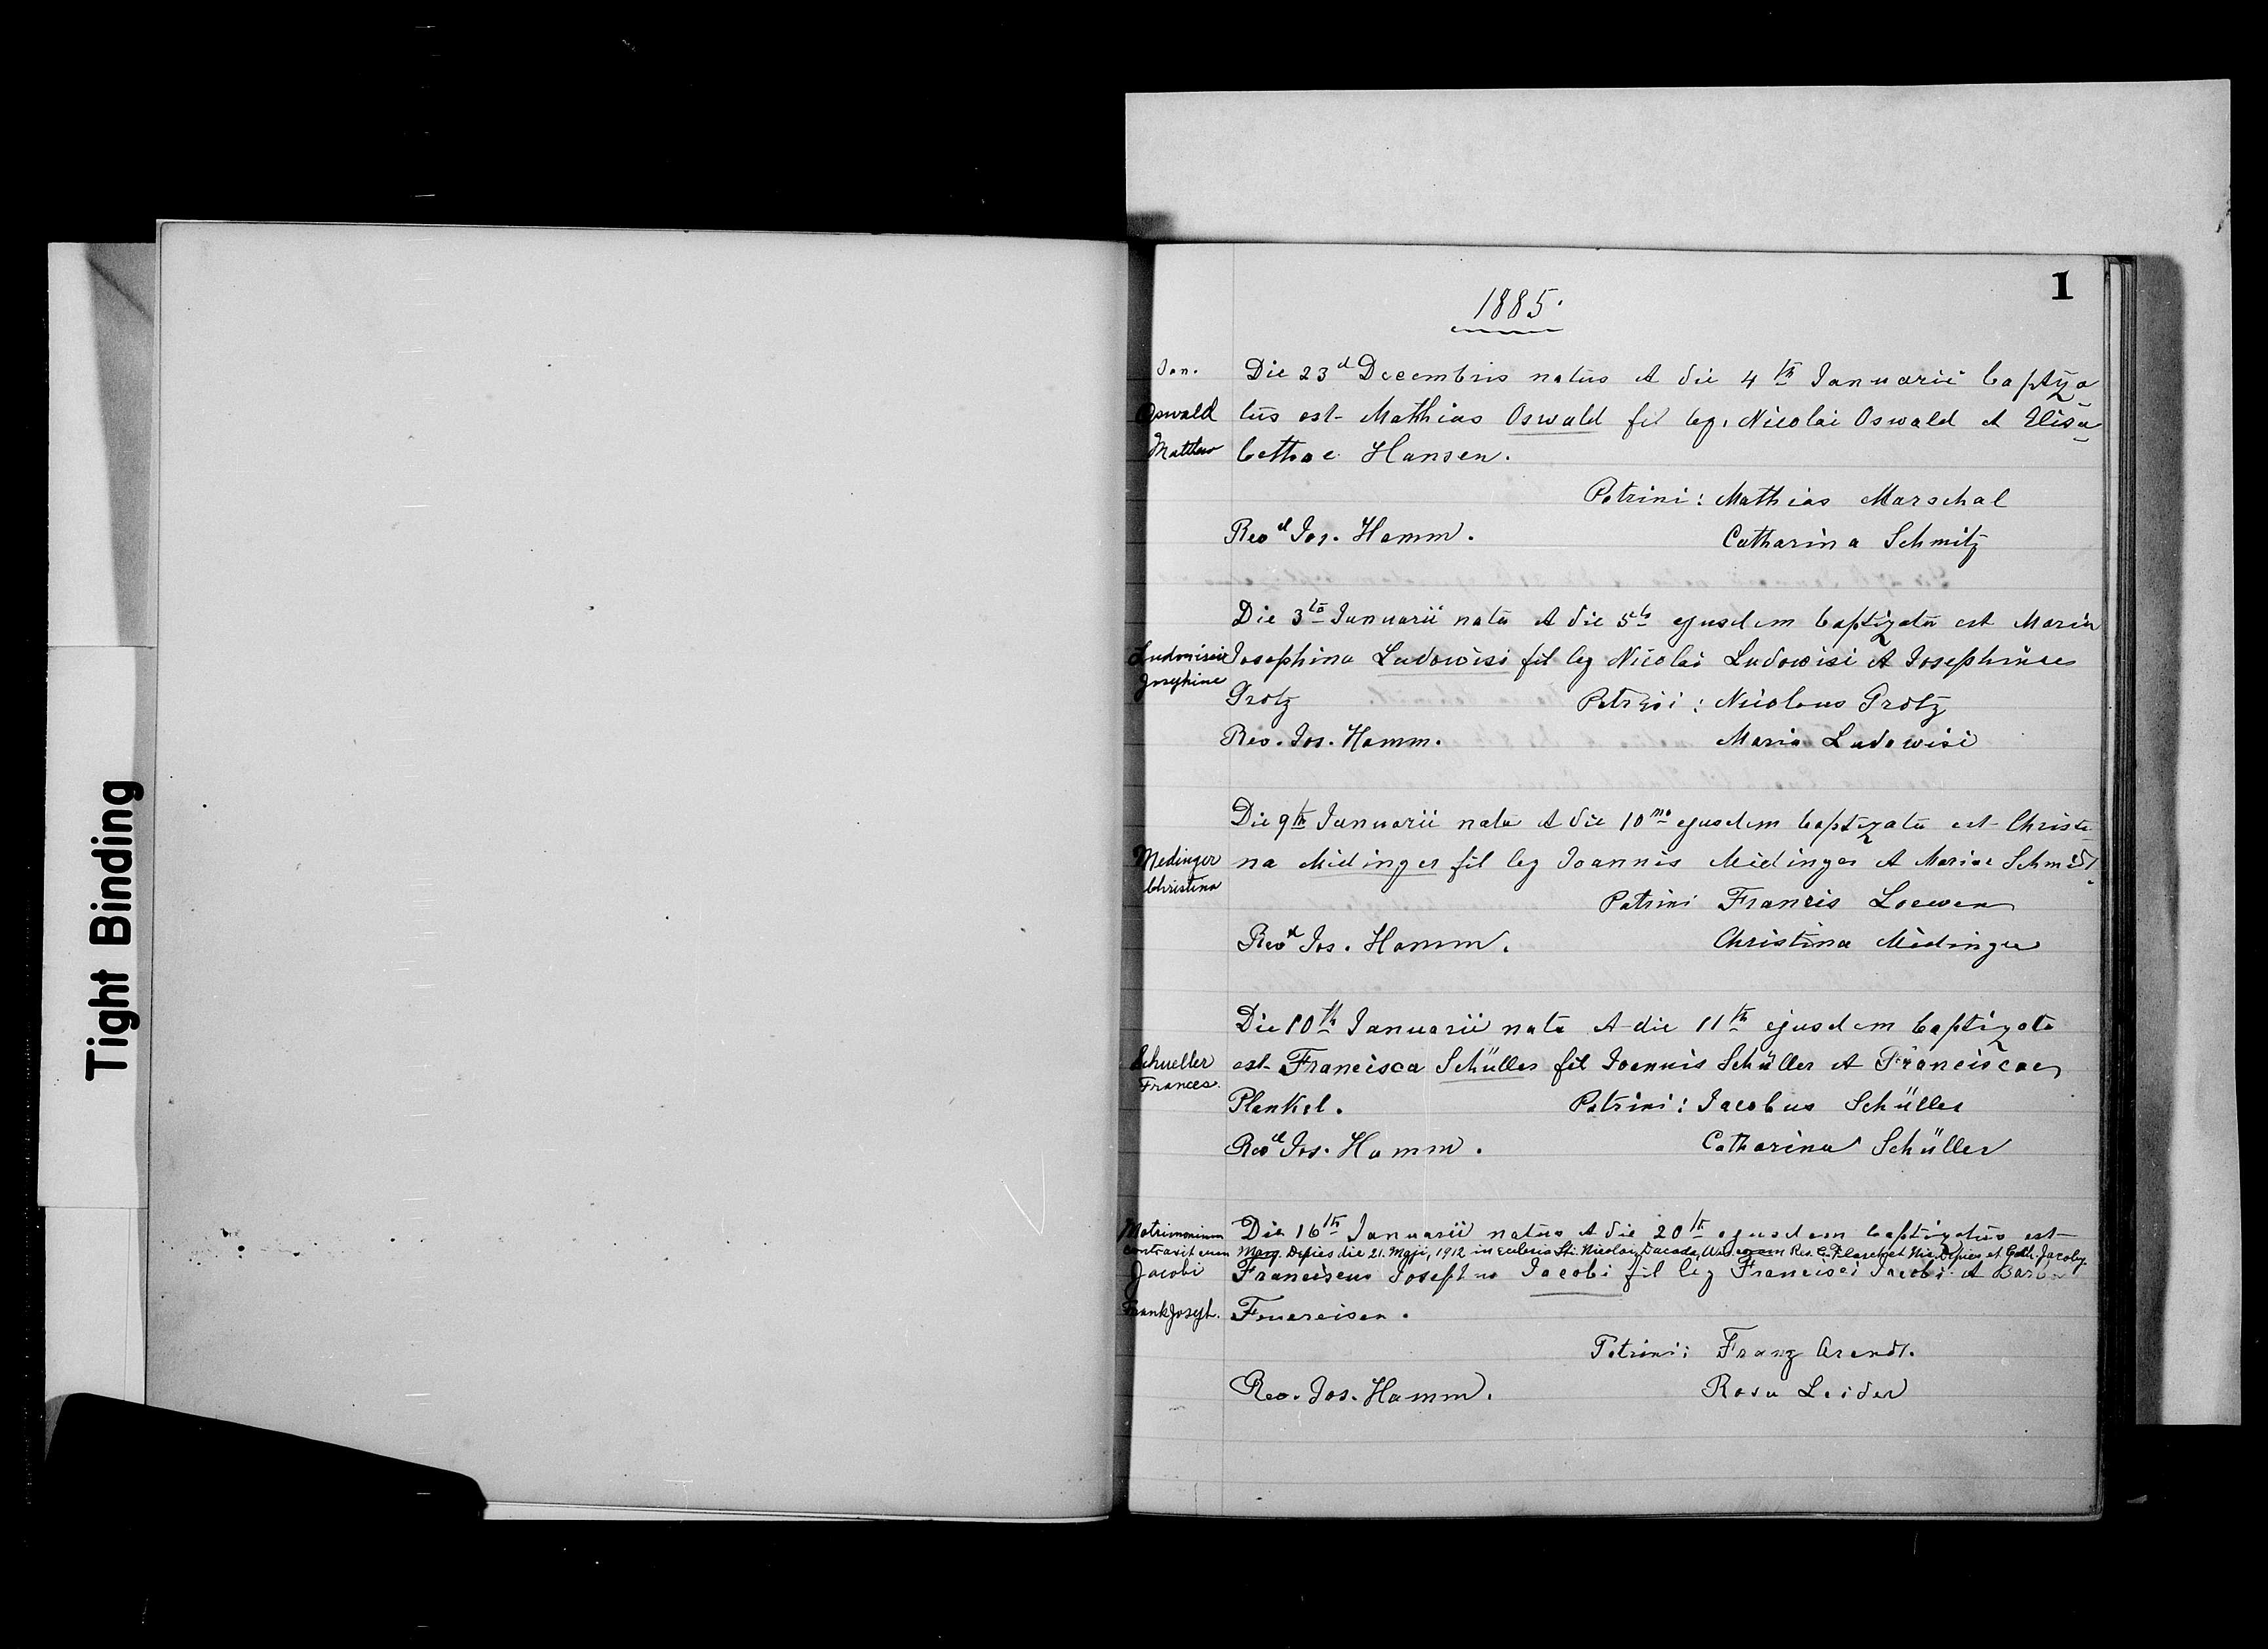 Tight Binding
1
1885.
Jan. Die 23d Decembris natus et die 4th Januarii baptiza
Oswald tus est Mathias Oswald fil leg. Nicolai Oswald et Elisa
Matthew bethae Hansen.
Patrini: Mathias Marschal
Revd Jos. Hamm. Catharina Schmitz
Die 3tia Januarii nata et die 5ta ejusdem baptizata est Maria
Josephina Ludowisi fil leg Nicolai Ludowisi et Josephinae
Josephine
Grotz Patrini: Nicolaus Grotz
Rev. Jos. Hamm. Maria Ludowisi
Die 9th Januarii nata et die 10ma ejusdem baptizata est Christi
Medinger na Midinger fil leg Joannis Midinger et Mariae Schmidt.
Christina
Patrini Francis Loewen
Revd Jos. Hamm. Christina Midinger
Die 10th Januarii nata et die 11th ejusdem baptizata
Schueller est Francisca Schüller fil Joannis Schüller et Franciscae
Frances.
Plenkel. Patrini: Jacobus Schüller
Revd Jos. Hamm. Catharina Schüller
Matrimonium Die 16th Januarii natus et die 20th ejusdem baptizatus est
contraxit cum Marg. Depies die 21. Maji, 1912 in ecclesia Sti. Nicolai, Dacada, Wis. coram Rev. et Nic. Depies et Cath. Jacoby.
Jacobi Franciscus Josephus Jacobi fil leg Francisci Jacobi et Barb
Frank Joseph. Feuereisen.
Patrini: Franz Arendt.
Rev. Jos. Hamm. Rosa Leider